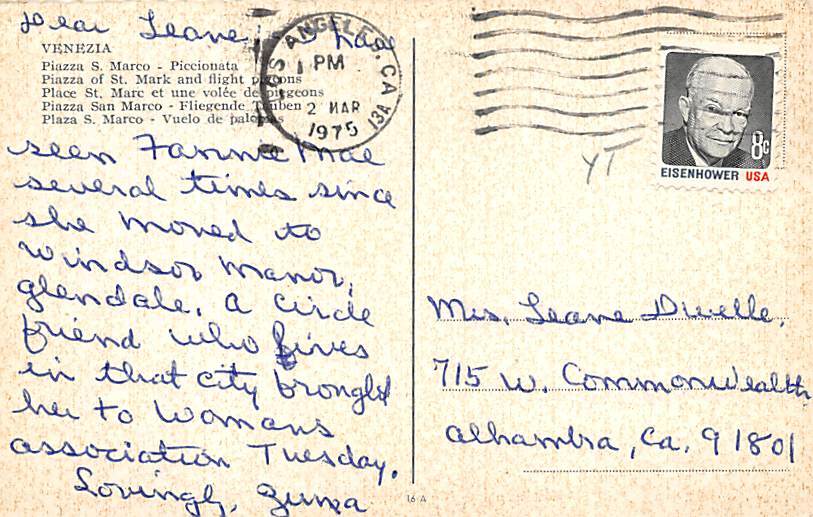 Dear Leane, I have
VENEZIA
Piazza S. Marco - Piccionata
Piazza of St. Mark and flight pigeons
Place St. Marc et une volée de pigeons
Piazza San Marco - Fliegende Tauben
Plaza S. Marco - Vuelo de palomas
seen Fannie Mae
several times since
she moved to
Windsor Manor,
Glendale. A circle
friend who lives
in that city brought
her to Womans
association Tuesday.
Lovingly, Zuma
LOS ANGELES, CA
PM
2 MAR
1975
13A
8c
EISENHOWER USA
YT
Mrs. Leane Duelle,
715 W. Commonwealth
Alhambra, Ca. 91801
16 A